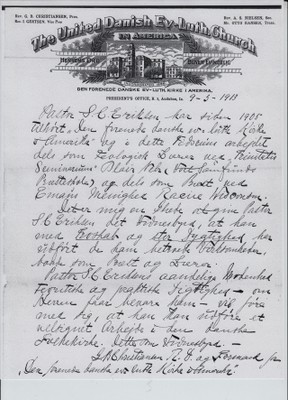 Rev. G. B. CHRISTIANSEN, Pres.
Rev. A. S. NIELSEN, Sec.
The United Danish Ev. Luth. Church
IN AMERICA
DEN FORENEDE DANSKE EV-LUTH. KIRKE I AMERIKA.
PRESIDENT'S OFFICE, Audubon, Ia.
9-5-1913
Pastor S. C. Eriksen har siden 1905
tilhørt „Den forenede danske ev. luth. Kirke
i Amerika" og i dette Tidsrum arbejdet
dels som Teologisk Lærer ved „Trinitatis
Seminarium" Blair Nebr. (vort Samfunds
Præsteskole) og dels som Præst ved
Emaus Menighed Racine Wisconsin.
mig en Glæde at give Pastor
S. C. Eriksen det Vidnesbyrd, at han
med Troskab og stor Dygtighed har
udført de ham betroede Virksomheder,
baade som Præst og Lærer.
Pastor S. C. Eriksens aandelige Modenhed
og praktiske Dygtighed — om
Herren faar bevare ham — vil føre
med sig, at han kan udføre et
velsignet Arbejde i den danske
Folkekirke. Dette som Vidnesbyrd.
G. B. Christiansen og Formand for
„Den forenede danske ev. luth. Kirke i Amerika"